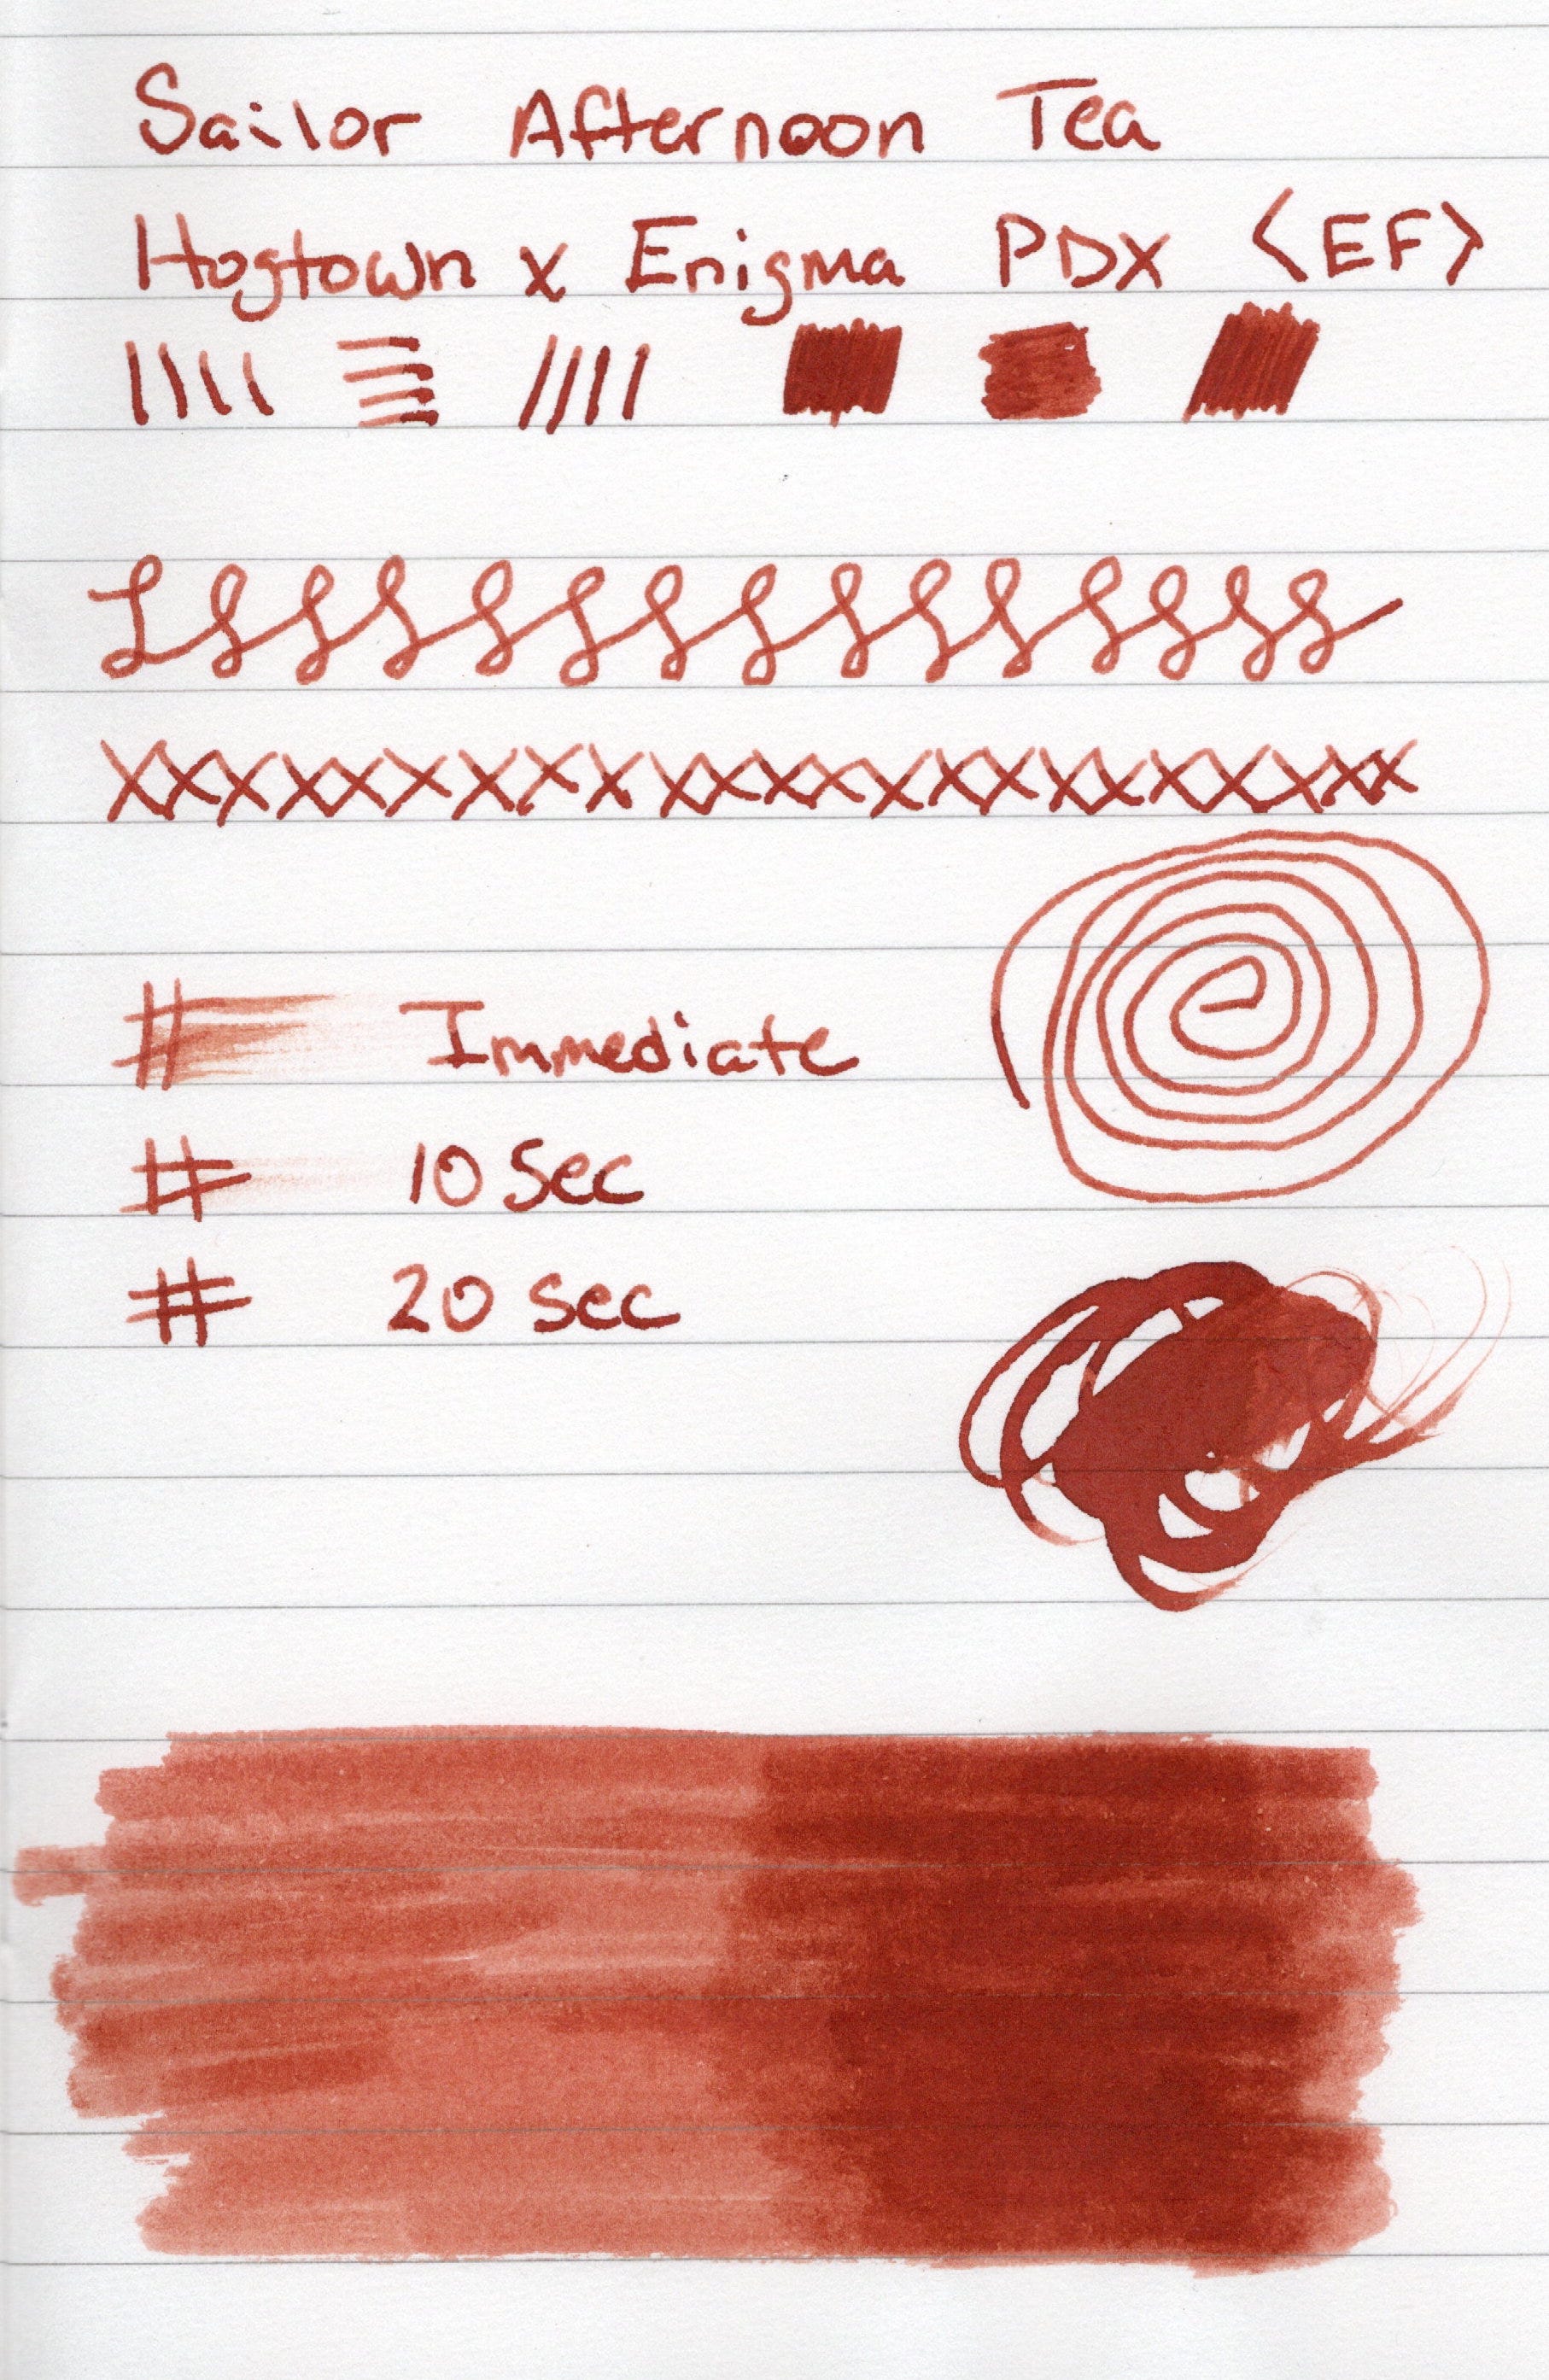 Sailor Afternoon Tea
Hogtown x Enigma PDX <EF>
xxxxxxxxxxxxxxxxxxxxxx
# Immediate
# 10 Sec
# 20 Sec